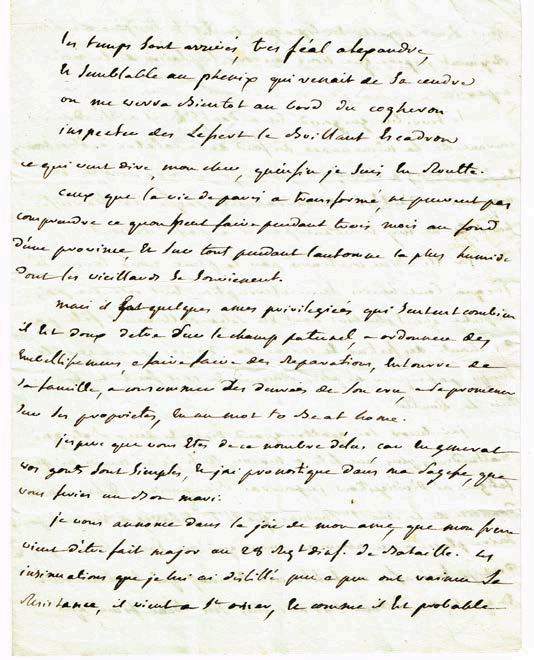 les temps sont arrivés, tres féal alexandre,
et semblable au phenix qui renait de sa cendre
on me verra bientot au bord du cogheron
inspecter des Lesfert le brillant Escadron
ce qui veut dire mon cher, qu'enfin je suis en Route.
Ceux que la vie de paris a transformé, ne peuvent pas
comprendre ce quon peut faire pendant trois mois au fond
d'une province, et sur tout pendant lautomne la plus humide
dont les vieillards se souvienent.
mais il est quelques ames privilegiées qui sentent combien
il est doux detre sur le champ paternel, a ordonner des
Embellissemens, a faire faire des Reparations, Entouré de
sa famille, a consommer des denrées de son cru, a se promener
sur ses proprietés, En un mot to be at home.
jespere que vous etes de ce nombre délus car En general
vos gouts sont simples, et jai pronostiqué dans ma sagesse, que
vous feriez un Bon mari.
je vous annonce dans la joie de mon ame, que mon frere
vient detre fait major au 28 Regt dinf. de Bataille. les
insinuations que je lui ai distillé peu a peu ont vaincu sa
Resistance, il vient a St omer, Et comme il Est probable